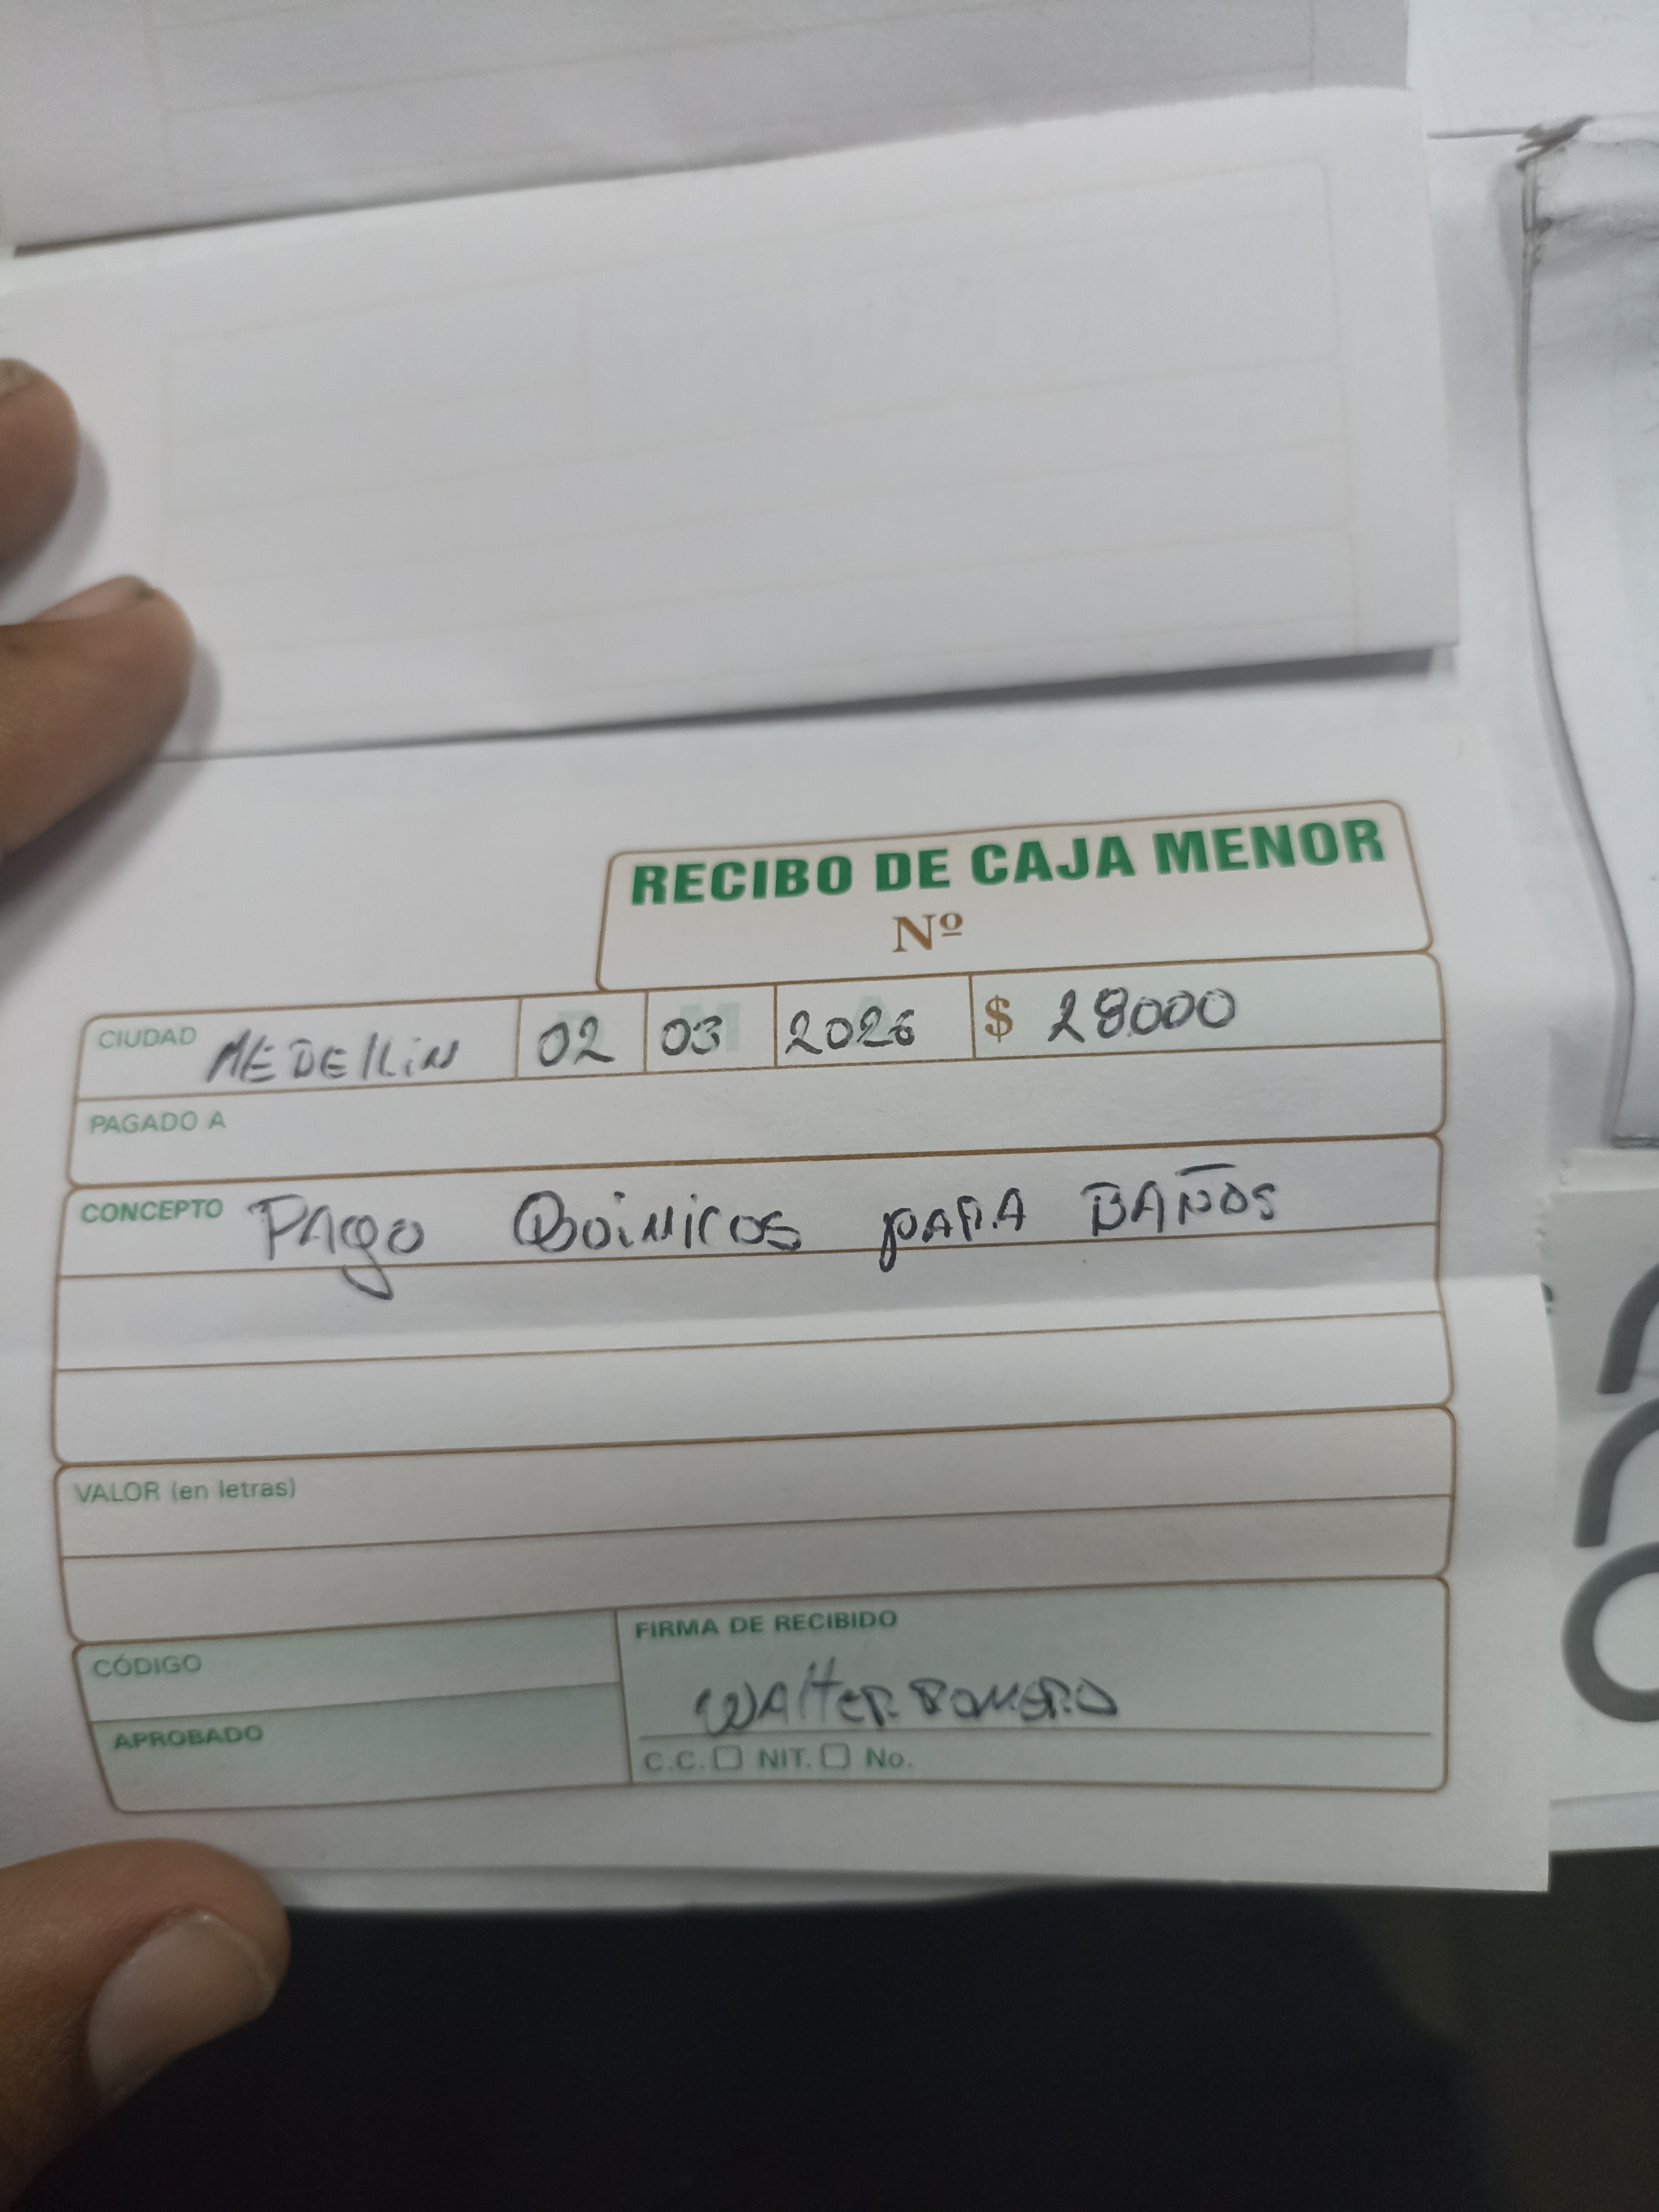 RECIBO DE CAJA MENOR
Nº
CIUDAD MEDEllin 02 03 2026 $ 28000
PAGADO A
CONCEPTO PAgo Quimicos pARA BAÑOS
VALOR (en letras)
CÓDIGO
FIRMA DE RECIBIDO
WAlteR ROMERO
APROBADO
C.C. NIT. No.